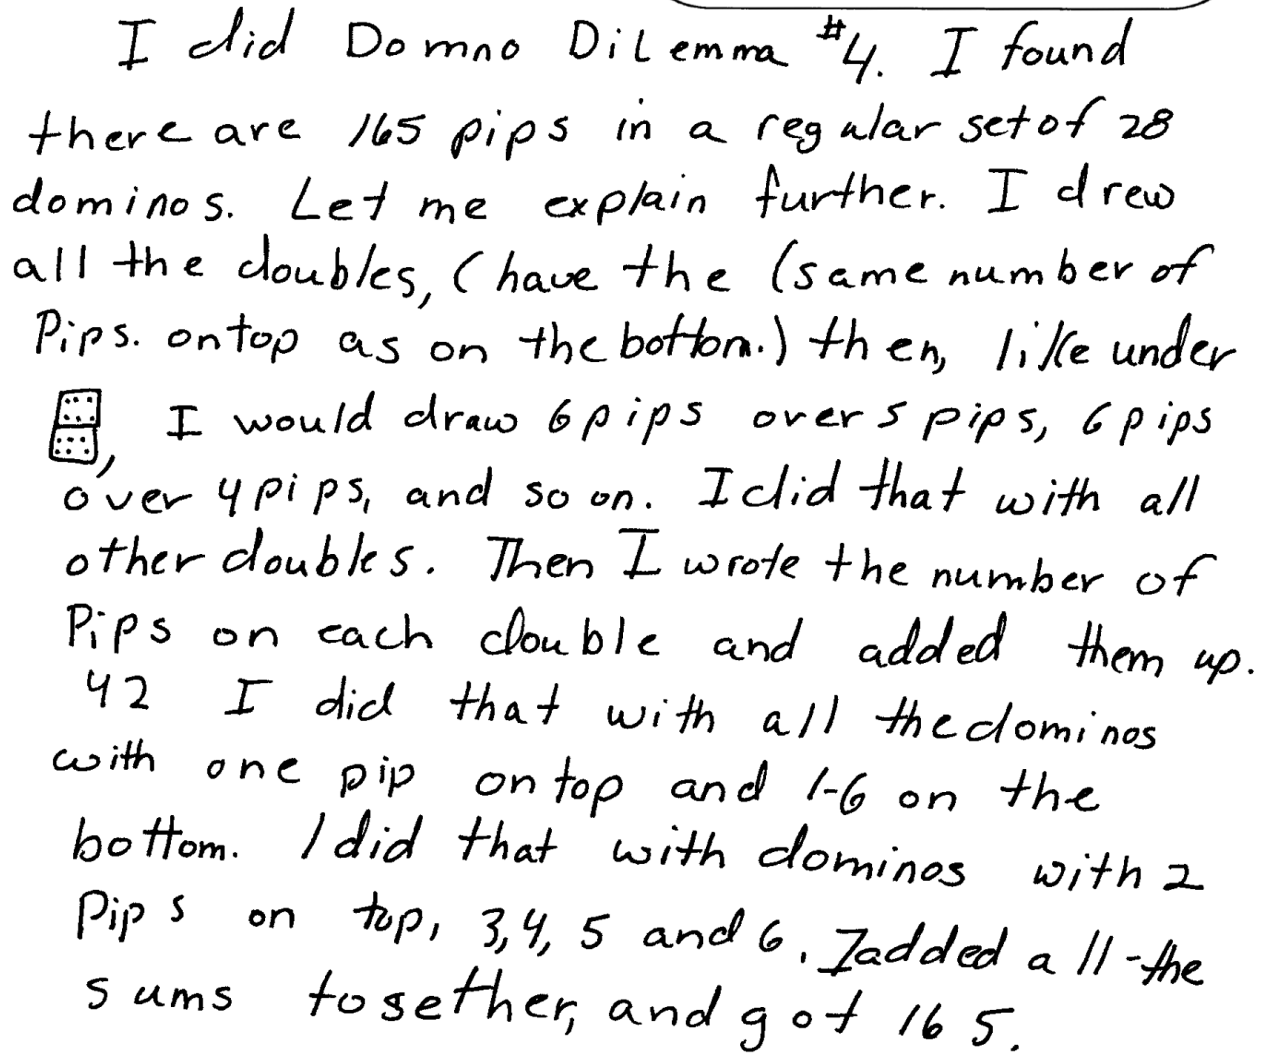 I did Domno Dilemma #4. I found
there are 165 pips in a regular set of 28
dominos. Let me explain further. I drew
all the doubles, (have the (same number of
Pips. on top as on the bottom.) then, like under
, I would draw 6 pips over 5 pips, 6 pips
over 4 pips, and so on. I did that with all
other doubles. Then I wrote the number of
Pips on each double and added them up.
42 I did that with all the dominos
with one pip on top and 1-6 on the
bottom. I did that with dominos with 2
Pips on top, 3, 4, 5 and 6. I added all the
sums together, and got 165.